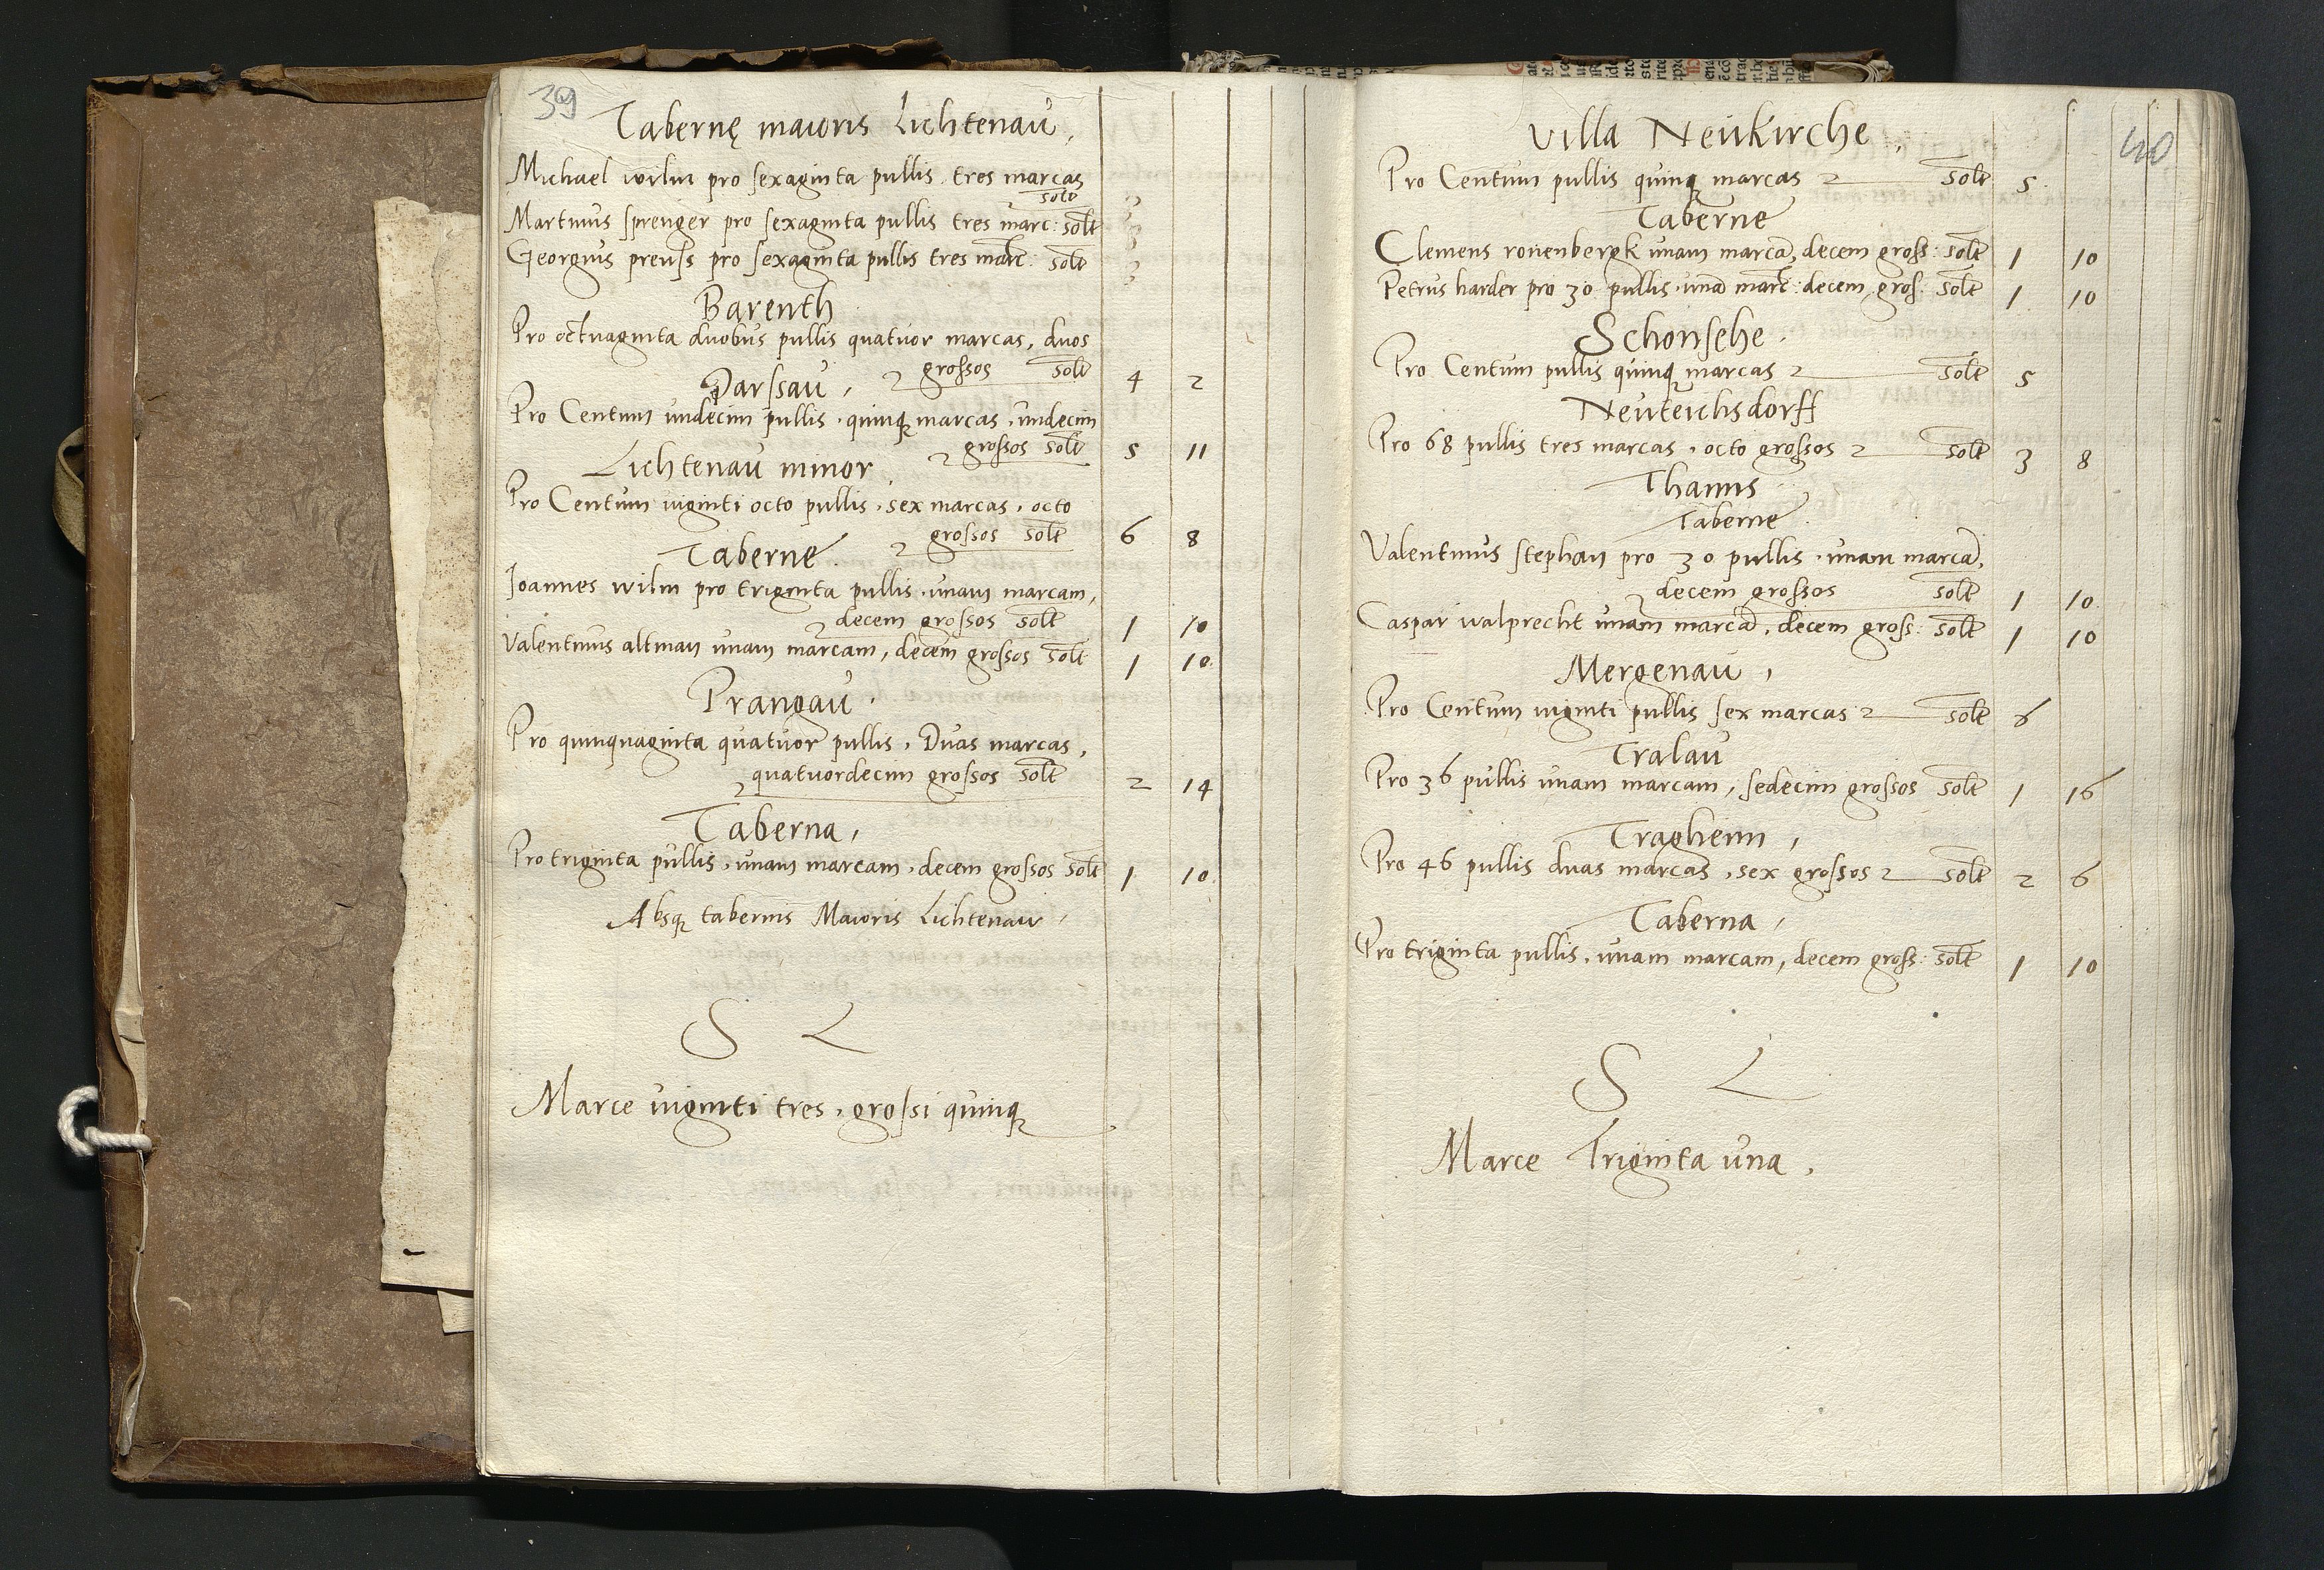 39
Tabernę maioris Lichtenau,
Michael wilm pro sexaginta pullis tres marcas
solt 3
Martinus sprenger pro sexaginta pullis tres marc: solt 3
Georgius preuss pro sexaginta pullis tres marc: solt 3
Barenth
Pro octuaginta duobus pullis quatuor marcas, duos
grossos solt 4 2
Parssau,
Pro Centum undecim pullis, quinq marcas, undecim
grossos solt 5 11
Lichtenau minor
Pro Centum viginti octo pullis, sex marcas, octo
grossos solt 6 8
Taberne.
Joannes wilm pro triginta pullis, unam marcam,
decem grossos solt 1 10
Valentinus altman unam marcam, decem grossos solt 1 10
Prangau.
Pro quinquaginta quatuor pullis, Duas marcas,
quatuordecim grossos solt 2 14
Taberna,
Pro triginta pullis, unam marcam, decem grossos solt 1 10
Absq tabernis Maioris Lichtenaw,
S L
Marce viginti tres, grossi quinq
40
Villa Neukirche,
Pro Centum pullis quinq marcas solt 5
Taberne
Clemens ronenbergk unam marcā, decem gross: solt 1 10
Petrus harder pro 30 pullis, unā marc: decem gros: solt 1 10
Schonsehe.
Pro Centum pullis quinq marcas solt 5
Neuteichsdorff
Pro 68 pullis tres marcas, octo grossos solt 3 8
Thanns
Taberne.
Valentinus stephan pro 30 pullis, unam marcā,
decem grossos solt 1 10
Caspar walprecht unam marcā, decem gross: solt 1 10
Mergenau,
Pro Centum viginti pullis sex marcas solt 6
Tralau
Pro 36 pullis unam marcam, sedecim grossos solt 1 16
Tragheim,
Pro 46 pullis duas marcas, sex grossos solt 2 6
Taberna,
Pro triginta pullis, unam marcam, decem gross: solt 1 10
S L
Marce Triginta una,